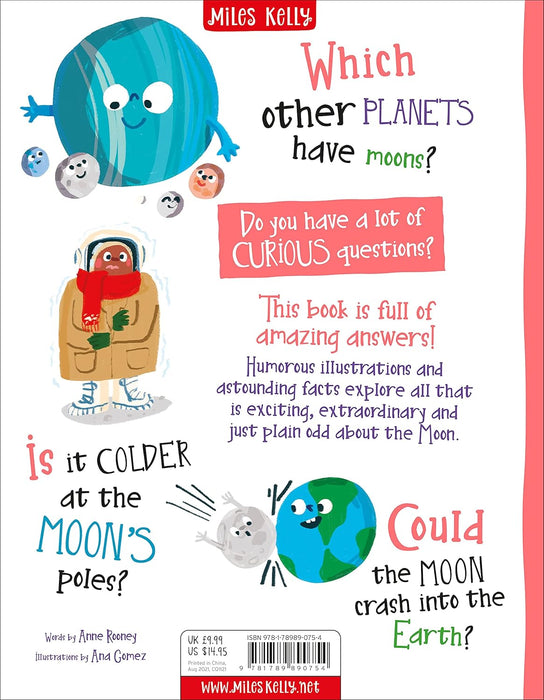 Miles Kelly
Which
other PLANETS
have moons?
Do you have a lot of
CURIOUS questions?
This book is full of
amazing answers!
Humorous illustrations and
astounding facts explore all that
is exciting, extraordinary and
just plain odd about the Moon.
Is it COLDER
at the
MOON'S
poles?
Could
the MOON
crash into the
Earth?
Words by Anne Rooney
Illustrations by Ana Gomez
UK £9.99
US $14.95
Printed in China,
Aug 2021, CGH21
ISBN 978-1-78989-075-4
9 781789 890754
www.MilesKelly.net